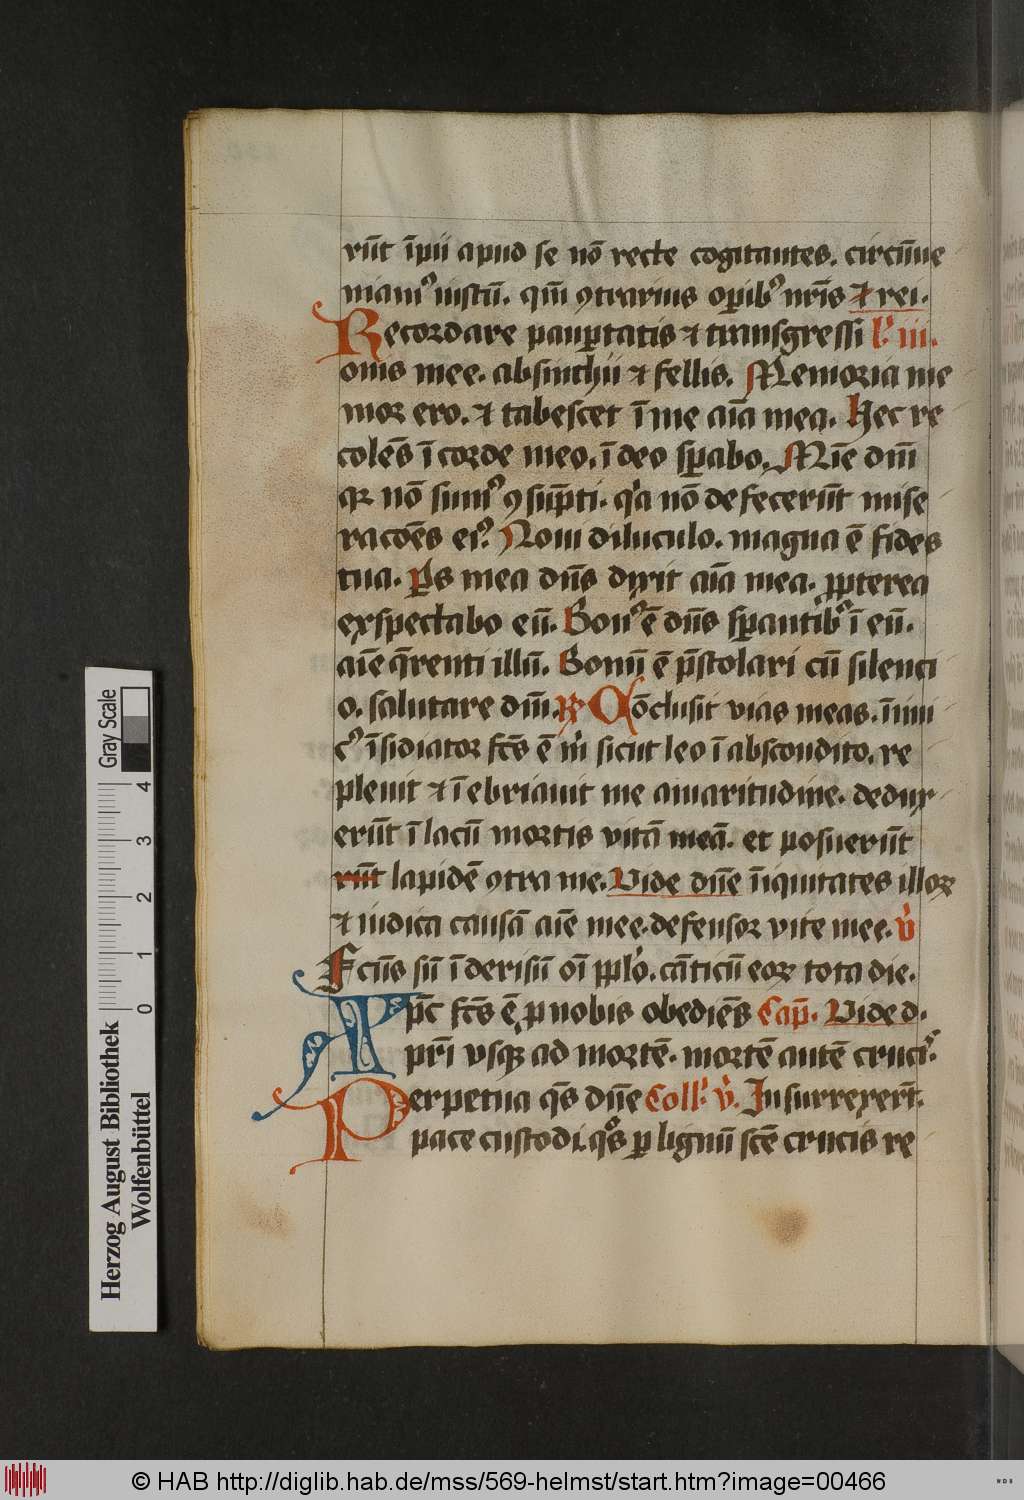 rūt īpii apud se nō recte cogitantes. circūue
niamꝰ iustū. qm̄ ꝯtrarius opibꝰ nr̄is ⁊ rei.
Recordare paup̱tatis ⁊ transgressi l' iii.
onis mee. absinthii ⁊ fellis. Memoria me
mor ero. ⁊ tabescet ī me aīa mea. Hec re
colēs ī corde meo. ī deo sp̱abo. Mīe dm̄
qꝛ nō sumꝰ ꝯsūpti. q'a nō defecerūt mise
racōēs eiꝰ. Noui diluculo. magna ē fides
tua. Ps mea dn̄s dixit aīa mea. ꝓpterea
exspectabo eū. Bonꝰ ē dn̄s sp̱antibꝰ ī eū.
aīe q̄renti illū. Bonū ē p̄stolari cū silenci
o. salutare dm̄. R Cōclusit vias meas. īimi
cꝰ īsidiator fc̄s ē m' sicut leo ī abscondito. re
pleuit ⁊ īebriauit me amaritudine. dedux
erūt ī lacū mortis vitā meā. et posuerūt
rūt lapidē ꝯtra me. Vide dn̄e īiquitates illoꝝ
⁊ iudica causā aīe mee. defensor vite mee. v'
Fcūs sū ī derisū oī pplo'. cāticū eoꝝ tota die.
AP xp̄c fc̄s ē ꝓ nobis obediēs Cap̄. Vide d.
pr̄i vsqꝫ ad mortē. mortē autē crucꝰ.
Perpetua q̄s dn̄e Coll' v'. Insurrexert̄.
pace custodi. q°s ꝑ lignū scē crucis re
Herzog August Bibliothek
Wolfenbüttel
0 1 2 3 4
Gray Scale
© HAB http://diglib.hab.de/mss/569-helmst/start.htm?image=00466